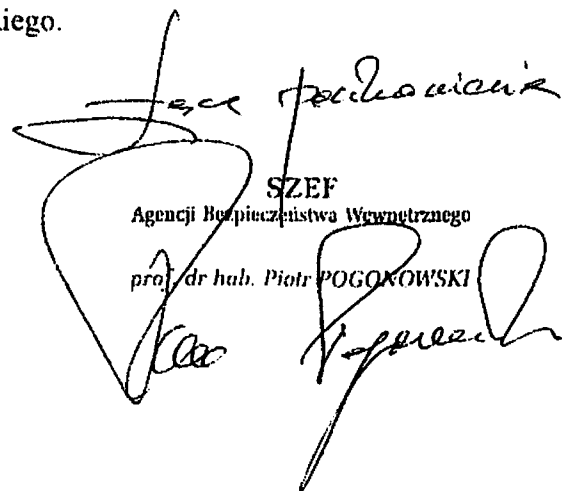 kiego.
Łączę
SZEF
Agencji Bezpieczeństwa Wewnętrznego
prof. dr hab. Piotr POGONOWSKI